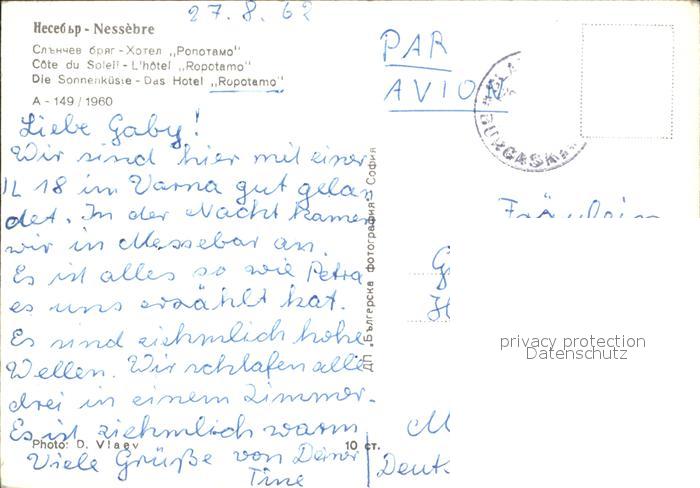 27.8.62
Несебър - Nessèbre
Слънчев бряг - Хотел „Ропотамо"
Côte du Soleil - L'hôtel „Ropotamo"
Die Sonnenküste - Das Hotel „Ropotamo"
A - 149 / 1960
PAR
AVION
Liebe Gaby!
Wir sind hier mit einer
IL 18 in Varna gut gelan
det. In der Nacht kamen
wir in Messebar an.
Es ist alles so wie Petra
es uns erzählt hat.
Es sind ziehmlich hohe
Wellen. Wir schlafen alle
drei in einem Zimmer.
Es ist ziehmlich warm
Viele Grüße von Deiner
Tine
Photo: D. Vlaev
10 ст.
ДП „Българска фотография" София
BURGASKA
Fräulein
G
H
M
Deut
privacy protection
Datenschutz